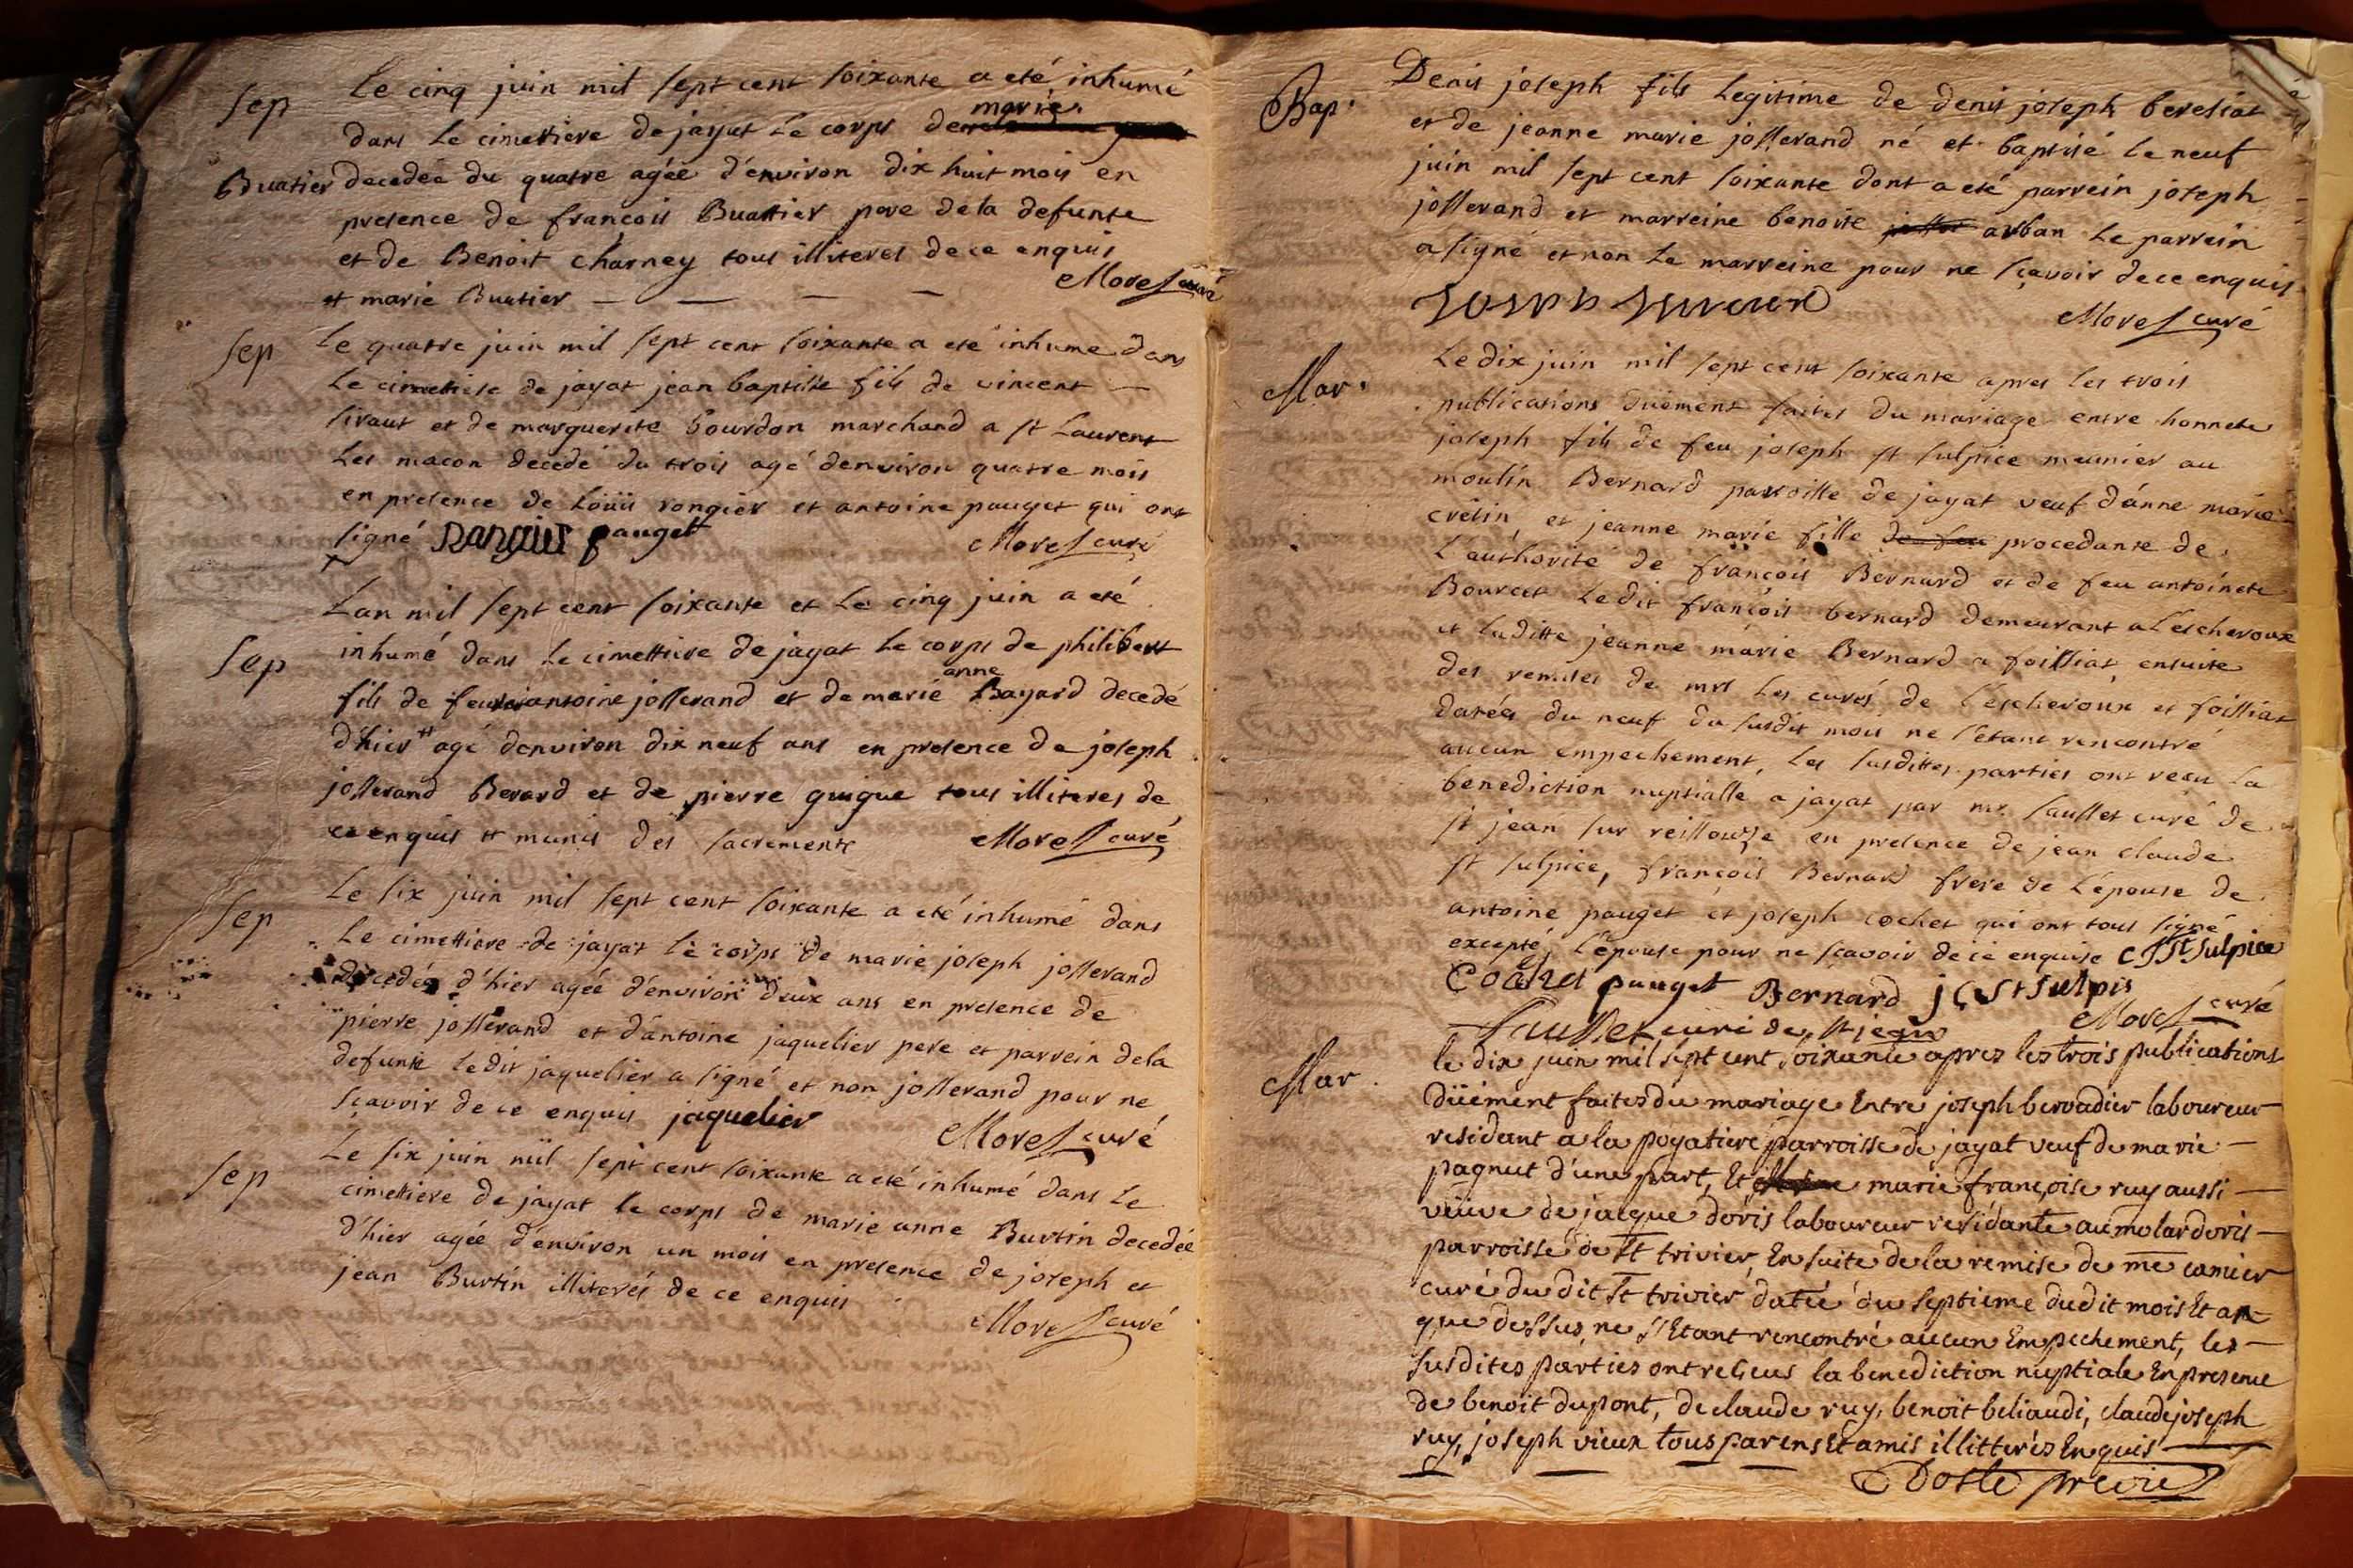 Sep
Le cinq juin mil sept cent soixante a eté inhumé
dans le cimettiere de jayat le corps de marie
Buatier decedée du quatre agée d'environ dix huit mois en
presence de françois Buattier pere dela defunte
et de Benoit charney tous illiteres de ce enquis
# marie Buatier — — — — Morel curé
Sep
Le quatre juin mil sept cent soixante a eté inhume dans
Le cimettiere de jayat jean baptiste fils de vincent —
siraut et de marguerite bourdon marchand a st Laurent
Les macon decedé du trois agé denviron quatre mois
en presence de Loüis rongier et antoine pauget qui ont
signé pauget Morel curé
Lan mil sept cent soixante et le cinq juin a eté
Sep
inhumé dans le cimettiere de jayat le corps de philibert
fils de feu antoine josserand et de marie anne Bayard decedé
d'hier # agé denviron dix neuf ans en presence de joseph
josserand Berard et de pierre guigue tous illiteres de
ce enquis # munis des sacrements Morel curé
Le six juin mil sept cent soixante a eté inhumé dans
Sep
Le cimettiere de jayat le corps de marie joseph josserand
decedée d'hier agée d'environ deux ans en presence de
pierre josserand et d'antoine jaquelier pere et parrein dela
defunte ledit jaquelier a signé et non josserand pour ne
sçavoir de ce enquis jaquelier Morel curé
Le six juin mil sept cent soixante a eté inhumé dans le
Sep
cimettiere de jayat le corps de marie anne Burtin decedée
d'hier agée d'environ un mois en presence de joseph et
jean Burtin illiterés de ce enquis
Morel curé
Bap.
Denis joseph fils legitime de denis joseph bereliat
et de jeanne marie josserand né et baptisé le neuf
juin mil sept cent soixante dont a eté parrein joseph
josserand et marreine benoite arban le parrein
a signé et non la marreine pour ne sçavoir de ce enquis
Morel curé
Mar.
Le dix juin mil sept cent soixante apres les trois
publications düement faites du mariage entre honnete
joseph fils de feu joseph st sulpice meunier au
moulin Bernard parroisse de jayat veuf d'anne marie
cretin, et jeanne marie fille de feu procedante de
L'authorité de françois Bernard et de feu antoinete
Bourcet Ledit françois bernard demeurant a Lescheroux
et laditte jeanne marie Bernard a foissiat ensuite
des remises de mrs les curés de l'escheroux et foissiat
datées du neuf du susdit mois ne s'etant rencontré
aucun empechement, les susdittes parties ont recu la
benediction nuptialle a jayat par mr. saulset curé de
st jean sur reissouze en presence de jean claude
st sulpice, françois Bernard frere de l'epouse de
antoine pauget et joseph cochet qui ont tous signé
excepté l'epouse pour ne sçavoir de ce enquise C J St Sulpice
Cochet pauget Bernard j C St Sulpis
Saulset curé de st jean Morel curé
Mar.
le dix juin mil sept cent soixante aprez les trois publications
düement faites du mariage Entre joseph bervadier laboureur
residant a la poyatiere parroisse de jayat veuf de marie —
pagnut d'une part, Et marie françoise ruy aussi —
veuve de jacque doris laboureur residante au molardoris —
parroisse de st trivier, En suite de la remise de me camier
curé du dit st trivier datée du septieme dudit mois Et an
que dessus, ne s'Etant rencontré aucun Empechement, les —
susdites parties ont reçeus la benediction nuptiale En presence
de benoit dupont, de claude ruy, benoit beliaudi, claude joseph
ruy, joseph vieux tous parens Et amis illitteréz Enquis —